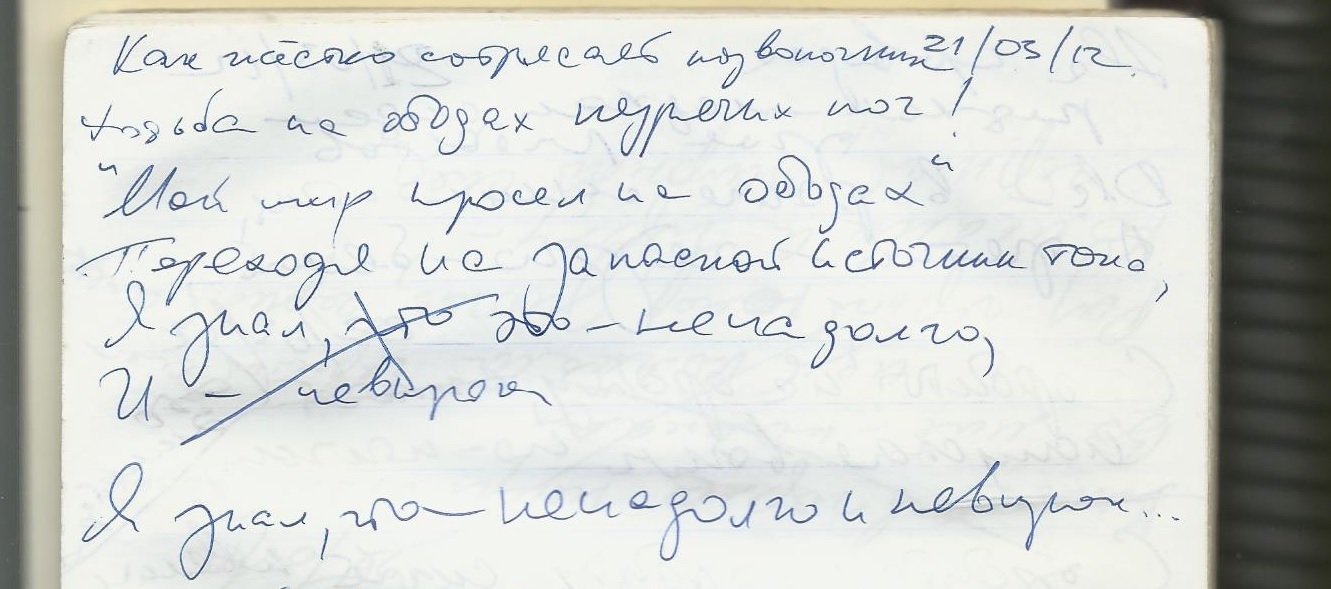 Как жёстко сотрясает позвоночник 21/03/12
ходьба на ободах ног!
"Мой мир просел на ободах"
Переходя на запасной источник тока,
Я знал, что это – ненадолго,
И – невпрок
Я знал, что – ненадолго и невпрок...